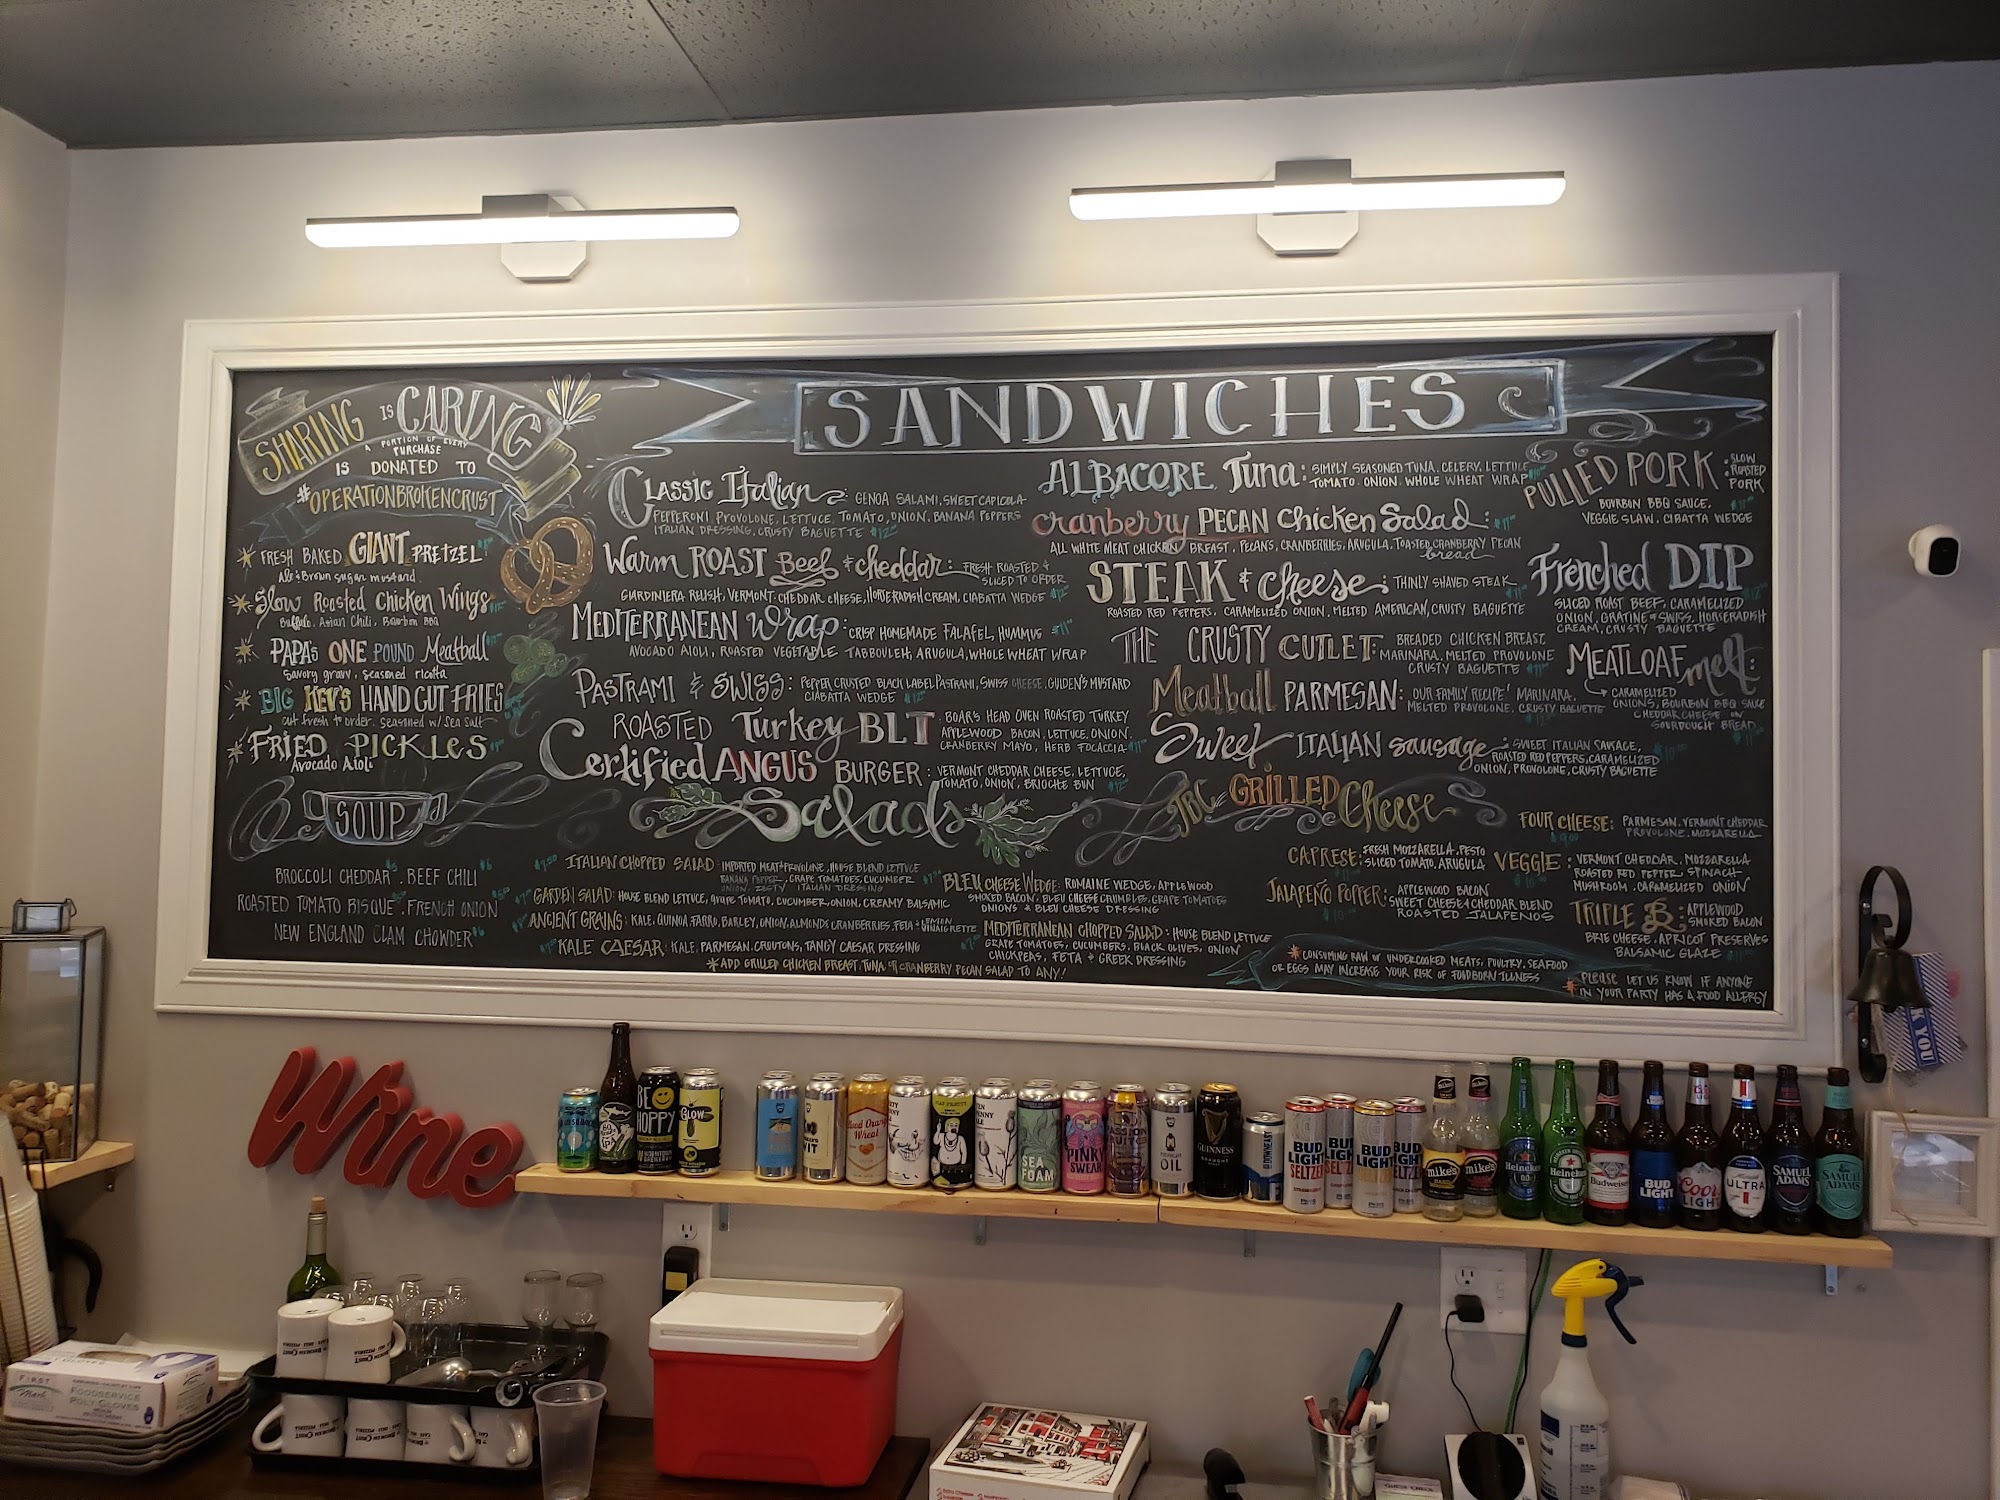 SHARING IS CARING
A PORTION OF EVERY
PURCHASE
IS DONATED TO
#OPERATIONBROKENCRUST
FRESH BAKED GIANT PRETZEL
Ale & Brown sugar mustard
Slow Roasted Chicken Wings
Buffalo, Asian Chili, Bourbon BBQ
PAPA's ONE POUND Meatball
Savory gravy, seasoned ricotta
BIG KEV'S HAND CUT FRIES
cut fresh to order. seasoned w/ Sea Salt
FRIED PICKLES
Avocado Aioli
SOUP
BROCCOLI CHEDDAR . BEEF CHILI $6
ROASTED TOMATO BISQUE . FRENCH ONION
NEW ENGLAND CLAM CHOWDER $6
SANDWICHES
CLASSIC Italian: GENOA SALAMI, SWEET CAPICOLA
PEPPERONI PROVOLONE, LETTUCE, TOMATO, ONION, BANANA PEPPERS
ITALIAN DRESSING, CRUSTY BAGUETTE $12
Warm ROAST Beef & cheddar: FRESH ROASTED &
SLICED TO ORDER
GIARDINIERA RELISH, VERMONT CHEDDAR CHEESE, HORSERADISH CREAM, CIABATTA WEDGE $12
MEDITERRANEAN Wrap: CRISP HOMEMADE FALAFEL, HUMMUS $11
AVOCADO AIOLI, ROASTED VEGETABLE TABBOULEH, ARUGULA, WHOLE WHEAT WRAP
PASTRAMI & SWISS: PEPPER CRUSTED BLACK LABEL PASTRAMI, SWISS CHEESE, GULDEN'S MUSTARD
CIABATTA WEDGE $12
ROASTED Turkey BLT: BOAR'S HEAD OVEN ROASTED TURKEY
APPLEWOOD BACON, LETTUCE, ONION,
CRANBERRY MAYO, HERB FOCACCIA $11
Certified ANGUS BURGER: VERMONT CHEDDAR CHEESE, LETTUCE,
TOMATO, ONION, BRIOCHE BUN $12
ALBACORE Tuna: SIMPLY SEASONED TUNA, CELERY, LETTUCE
TOMATO. ONION. WHOLE WHEAT WRAP
cranberry PECAN Chicken Salad: $11
ALL WHITE MEAT CHICKEN BREAST, PECANS, CRANBERRIES, ARUGULA, TOASTED CRANBERRY PECAN
bread
STEAK & Cheese: THINLY SHAVED STEAK
ROASTED RED PEPPERS, CARAMELIZED ONION, MELTED AMERICAN, CRUSTY BAGUETTE
THE CRUSTY CUTLET: BREADED CHICKEN BREAST,
MARINARA, MELTED PROVOLONE
CRUSTY BAGUETTE $11
Meatball PARMESAN: OUR FAMILY RECIPE! MARINARA.
MELTED PROVOLONE, CRUSTY BAGUETTE
Sweet ITALIAN Sausage: SWEET ITALIAN SAUSAGE,
ROASTED RED PEPPERS, CARAMELIZED
ONION, PROVOLONE, CRUSTY BAGUETTE
PULLED PORK: SLOW
ROASTED
PORK
BOURBON BBQ SAUCE.
VEGGIE SLAW, CIBATTA WEDGE
Frenched DIP
SLICED ROAST BEEF, CARAMELIZED
ONION, GRATINE OF SWISS, HORSERADISH
CREAM, CRUSTY BAGUETTE
MEATLOAF melt:
CARAMELIZED
ONIONS, BOURBON BBQ SAUCE
CHEDDAR CHEESE ON
SOURDOUGH BREAD
Salads
ITALIAN CHOPPED SALAD: IMPORTED MEAT & PROVOLONE, HOUSE BLEND LETTUCE
BANANA PEPPER, GRAPE TOMATOES, CUCUMBER
ONION. ZESTY ITALIAN DRESSING
GARDEN SALAD: HOUSE BLEND LETTUCE, GRAPE TOMATO, CUCUMBER, ONION, CREAMY BALSAMIC
ANCIENT GRAINS: KALE, QUINOA, FARRO, BARLEY, ONION, ALMONDS, CRANBERRIES, FETA & LEMON
VINAIGRETTE
KALE CAESAR: KALE, PARMESAN, CROUTONS, TANGY CAESAR DRESSING
BLEU CHEESE WEDGE: ROMAINE WEDGE, APPLEWOOD
SMOKED BACON, BLEU CHEESE CRUMBLES, GRAPE TOMATOES
ONIONS & BLEU CHEESE DRESSING
MEDITERRANEAN CHOPPED SALAD: HOUSE BLEND LETTUCE
GRAPE TOMATOES, CUCUMBERS, BLACK OLIVES, ONION
CHICKPEAS, FETA & GREEK DRESSING
*ADD GRILLED CHICKEN BREAST, TUNA or CRANBERRY PECAN SALAD TO ANY!
TBC GRILLED Cheese
FOUR CHEESE: PARMESAN, VERMONT CHEDDAR
PROVOLONE, MOZZARELLA
CAPRESE: FRESH MOZZARELLA, PESTO
SLICED TOMATO, ARUGULA
VEGGIE: VERMONT CHEDDAR, MOZZARELLA
ROASTED RED PEPPER, SPINACH
MUSHROOM, CARAMELIZED ONION
JALAPEÑO POPPER: APPLEWOOD BACON
SWEET CHEESE & CHEDDAR BLEND
ROASTED JALAPENOS
TRIPLE B: APPLEWOOD
SMOKED BACON
BRIE CHEESE, APRICOT PRESERVES
BALSAMIC GLAZE
*CONSUMING RAW or UNDERCOOKED MEATS, POULTRY, SEAFOOD
OR EGGS MAY INCREASE YOUR RISK OF FOODBORN ILLNESS
*Please LET US KNOW IF ANYONE
IN YOUR PARTY HAS A FOOD ALLERGY
Wine
BE
HOPPY
GLOW
Blood Orange
Wheat
SEA
FOAM
PINKY
SWEAR
PASSION
FRUIT
OIL
GUINNESS
DRAUGHT
DOWNEAST
BUD
LIGHT
SELTZER
BUD
LIGHT
mike's
HARD
mike's
Heineken
0.0
Heineken
Budweiser
BUD
LIGHT
Coors
LIGHT
ULTRA
SAMUEL
ADAMS
SAMUEL
ADAMS
YOU
FIRST
Mark
FOODSERVICE
POLY GLOVES
BROKEN CRUST